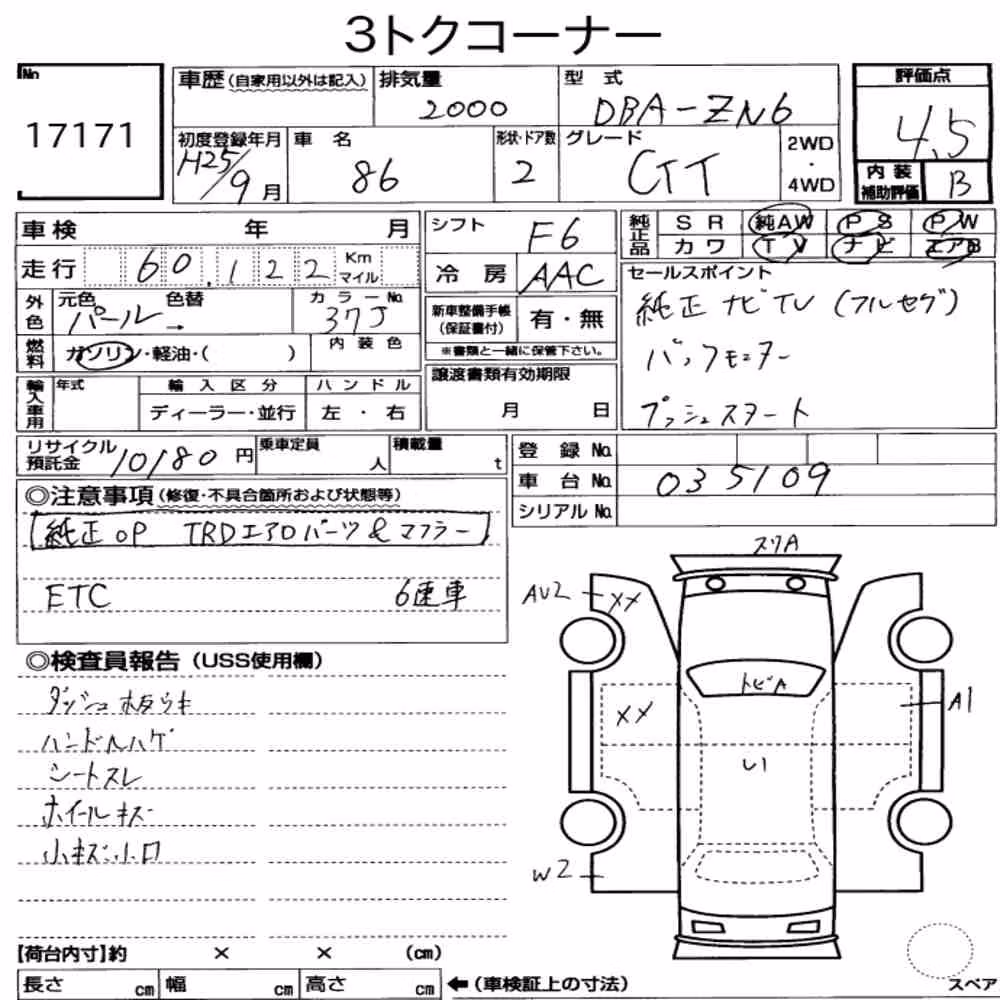 3トクコーナー
No 17171
車歴(自家用以外は記入) 排気量 2000 型式 DBA-ZN6 評価点 4.5
初度登録年月 H25/9月 車名 86 形状・ドア数 2 グレード GTT 2WD・4WD 内装補助評価 B
車検 年 月 シフト F6 純正品 SR 純AW PS PW
カワ TV ナビ エアB
走行 60.122 Km マイル 冷房 AAC
外色 元色 パール → 色替 カラーNo. 37J
新車整備手帳(保証書付) 有・無
※書類と一緒に保管下さい。
燃料 ガソリン・軽油・( ) 内装色
輸入車用 年式 輸入区分 ディーラー・並行 ハンドル 左・右
譲渡書類有効期限 月 日
セールスポイント
純正ナビTV(フルセグ)
バックモニター
プッシュスタート
リサイクル預託金 10180円 乗車定員 人 積載量 t
登録No.
車台No. 035109
シリアルNo.
◎注意事項(修復・不具合箇所および状態等)
純正OP TRDエアロパーツ&マフラー
ETC 6速車
◎検査員報告(USS使用欄)
ダッシュ板ウキ
ハンドルハゲ
シートスレ
ホイールキズ
小キズ小凹
スリA
AU2 XX
トビA
XX
A1
U1
W2
【荷台内寸】約 × × (cm)
長さ cm 幅 cm 高さ cm ←(車検証上の寸法)
スペア